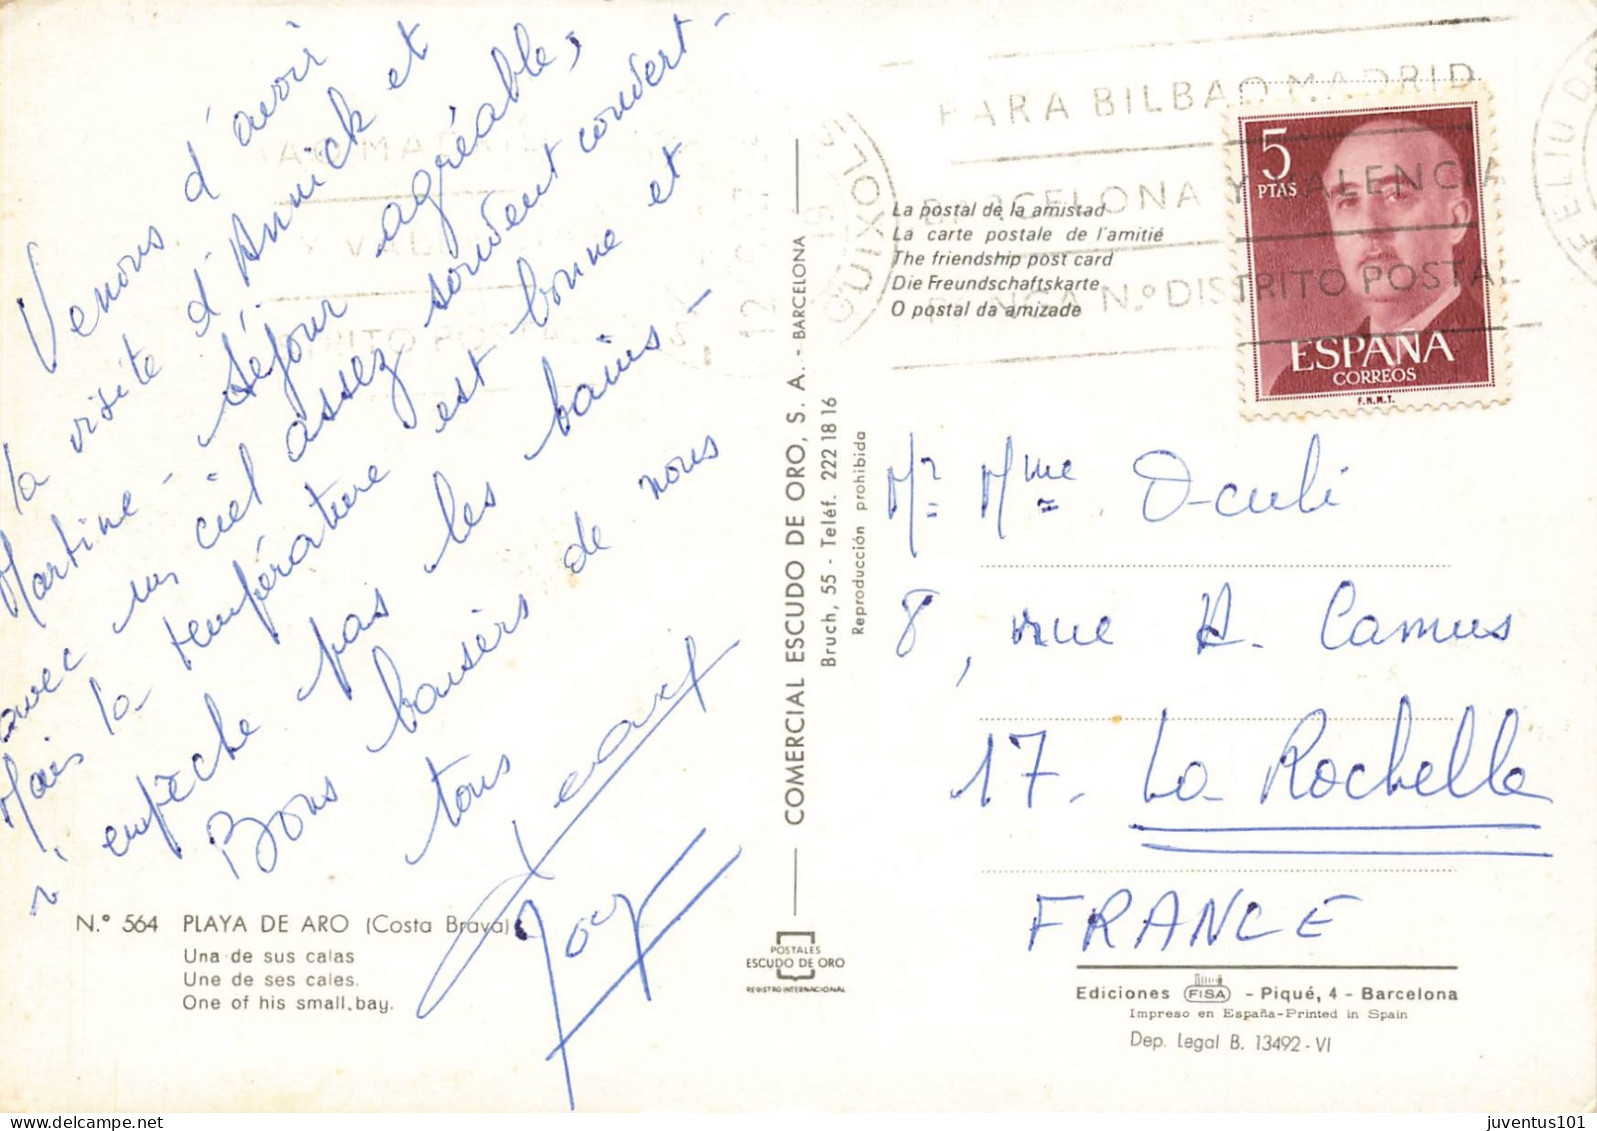 Venons d'avoir
la visite d'Annick et
Martine - Séjour agréable,
avec un ciel assez souvent couvert -
Mais la température est bonne et
n'empêche pas les bains -
Bons baisers de nous
tous
N.° 564 PLAYA DE ARO (Costa Brava)
Una de sus calas
Une de ses cales.
One of his small, bay.
COMERCIAL ESCUDO DE ORO, S. A. - BARCELONA
Bruch, 55 - Teléf. 222 18 16
Reproducción prohibida
POSTALES
ESCUDO DE ORO
REGISTRO INTERNACIONAL
PARA BILBAO MADRID
BARCELONA Y VALENCIA
PONGA N.º DISTRITO POSTAL
GUIXOLS
FELIU D
La postal de la amistad
La carte postale de l'amitié
The friendship post card
Die Freundschaftskarte
O postal da amizade
5
PTAS
ESPAÑA
CORREOS
F.N.M.T.
Mr Mme Oculi
8, rue A. Camus
17 - La Rochelle
FRANCE
Ediciones FISA - Piqué, 4 - Barcelona
Impreso en España-Printed in Spain
Dep. Legal B. 13492 - VI
juventus101